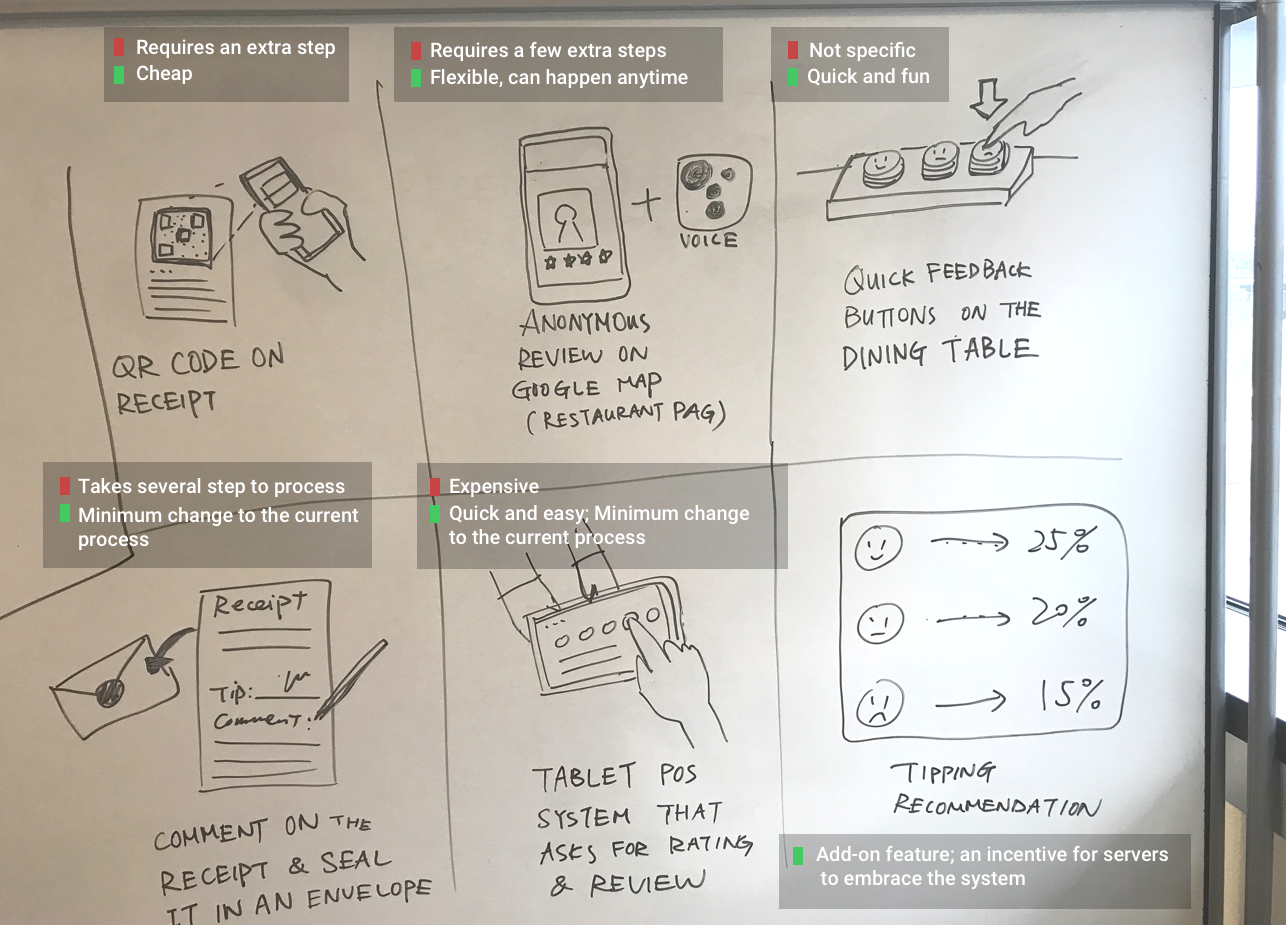 Requires an extra step
Cheap
QR CODE ON
RECEIPT
Requires a few extra steps
Flexible, can happen anytime
+
VOICE
ANONYMOUS
REVIEW ON
GOOGLE MAP
(RESTAURANT PAG)
Not specific
Quick and fun
QUICK FEEDBACK
BUTTONS ON THE
DINING TABLE
Takes several step to process
Minimum change to the current
process
Receipt
Tip:
Comment:
COMMENT ON THE
RECEIPT & SEAL
IT IN AN ENVELOPE
Expensive
Quick and easy; Minimum change
to the current process
TABLET POS
SYSTEM THAT
ASKS FOR RATING
& REVIEW
25%
20%
15%
TIPPING
RECOMMENDATION
Add-on feature; an incentive for servers
to embrace the system